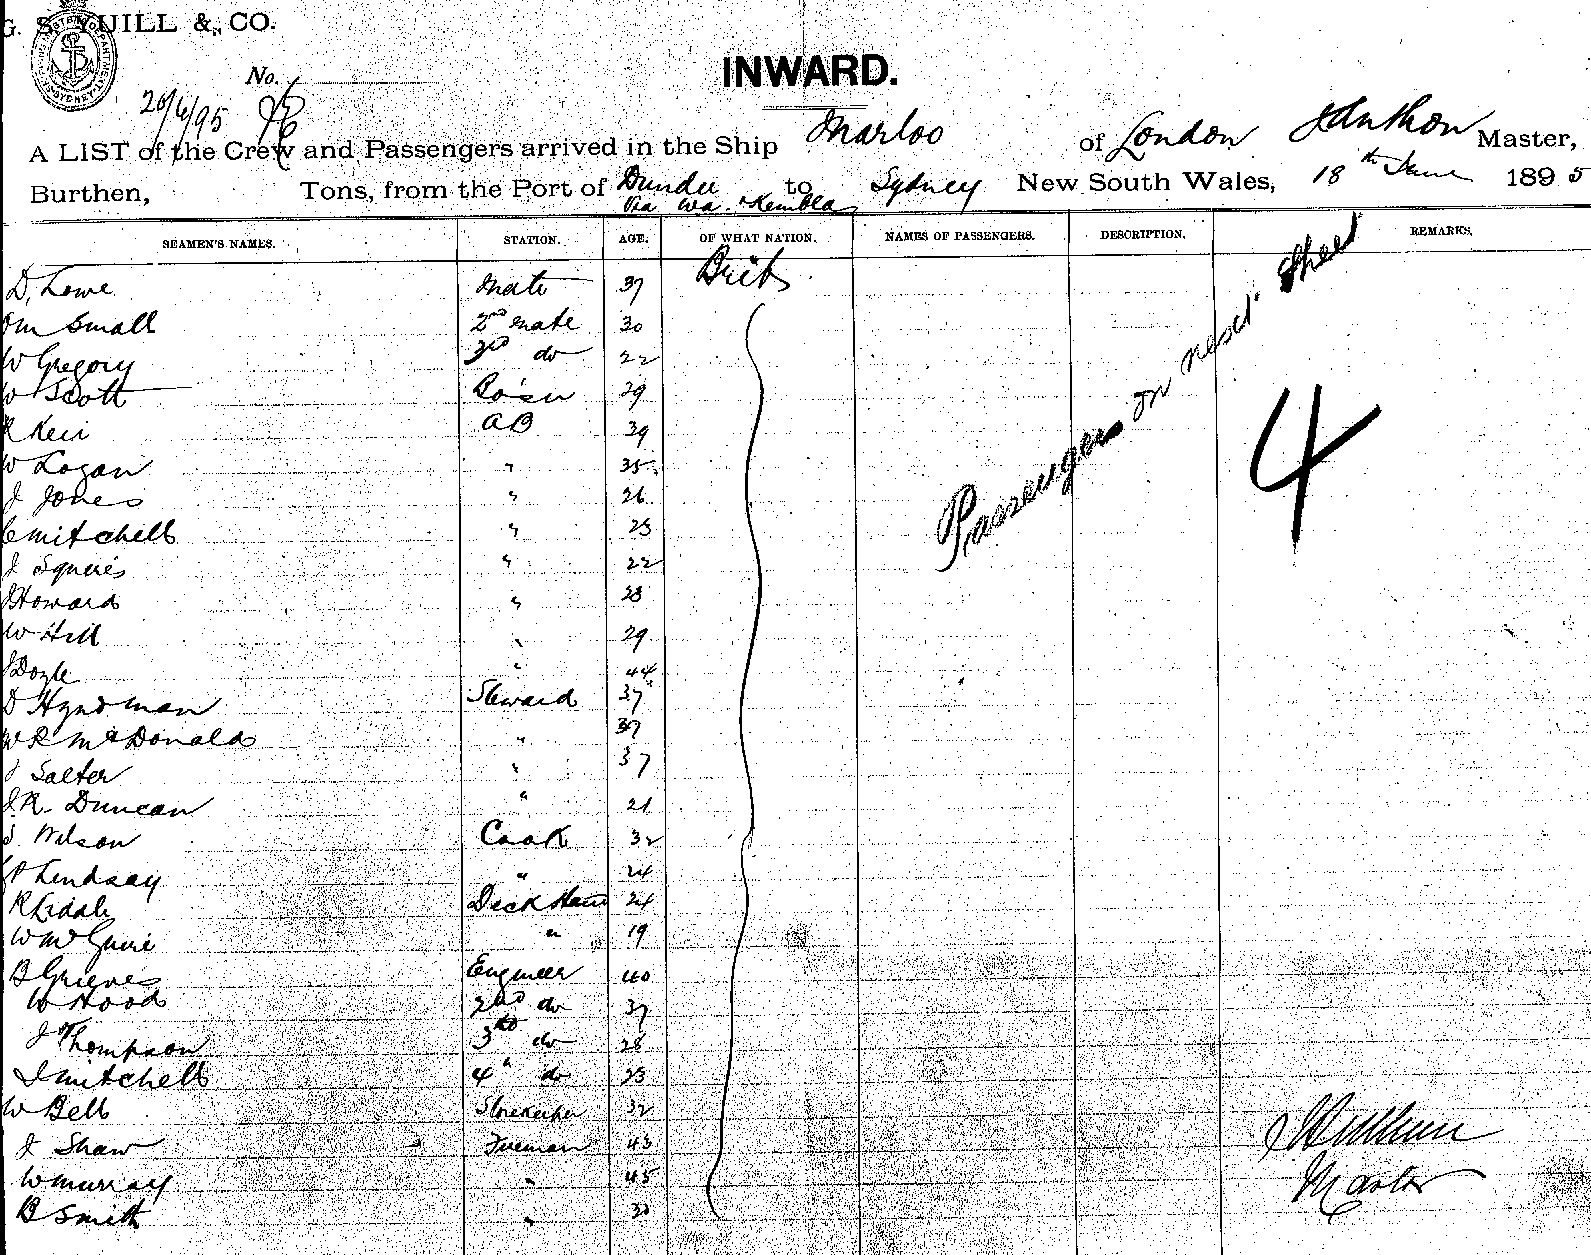 G. S. YUILL & CO.
SYDNEY
INWARD.
No.
20/6/95
A LIST of the Crew and Passengers arrived in the Ship Marloo of London Master,
Burthen, Tons, from the Port of Dundee to Sydney New South Wales, 18th June 1895
Via Kembla
SEAMEN'S NAMES. STATION. AGE. OF WHAT NATION. NAMES OF PASSENGERS. DESCRIPTION. REMARKS.
D. Lowe Mate 37 Brit
Small 2nd Mate 30
W Gregory 3rd do 22
W Scott Bo'sn 29
R Keir AB 39
W Logan " 35
J Jones " 26
C Mitchell " 25
J Squires " 22
J Howard " 28
W Hill " 29
J Doyle " 44
D Hyndman Steward 37
W R McDonald " 37
J Salter " 37
J. R. Duncan " 21
J. Wilson Cook 32
P Lindsay " 24
R Deck Hand 24
W McGuire " 19
B Grieves Engineer 40
W Hood 2nd do 37
J Thompson 3rd do 28
J Mitchell 4th do 23
W Bell Storekeeper 32
J Shaw Fireman 43
W Murray " 45
B Smith " 30
Passengers on next Sheet
4
Master